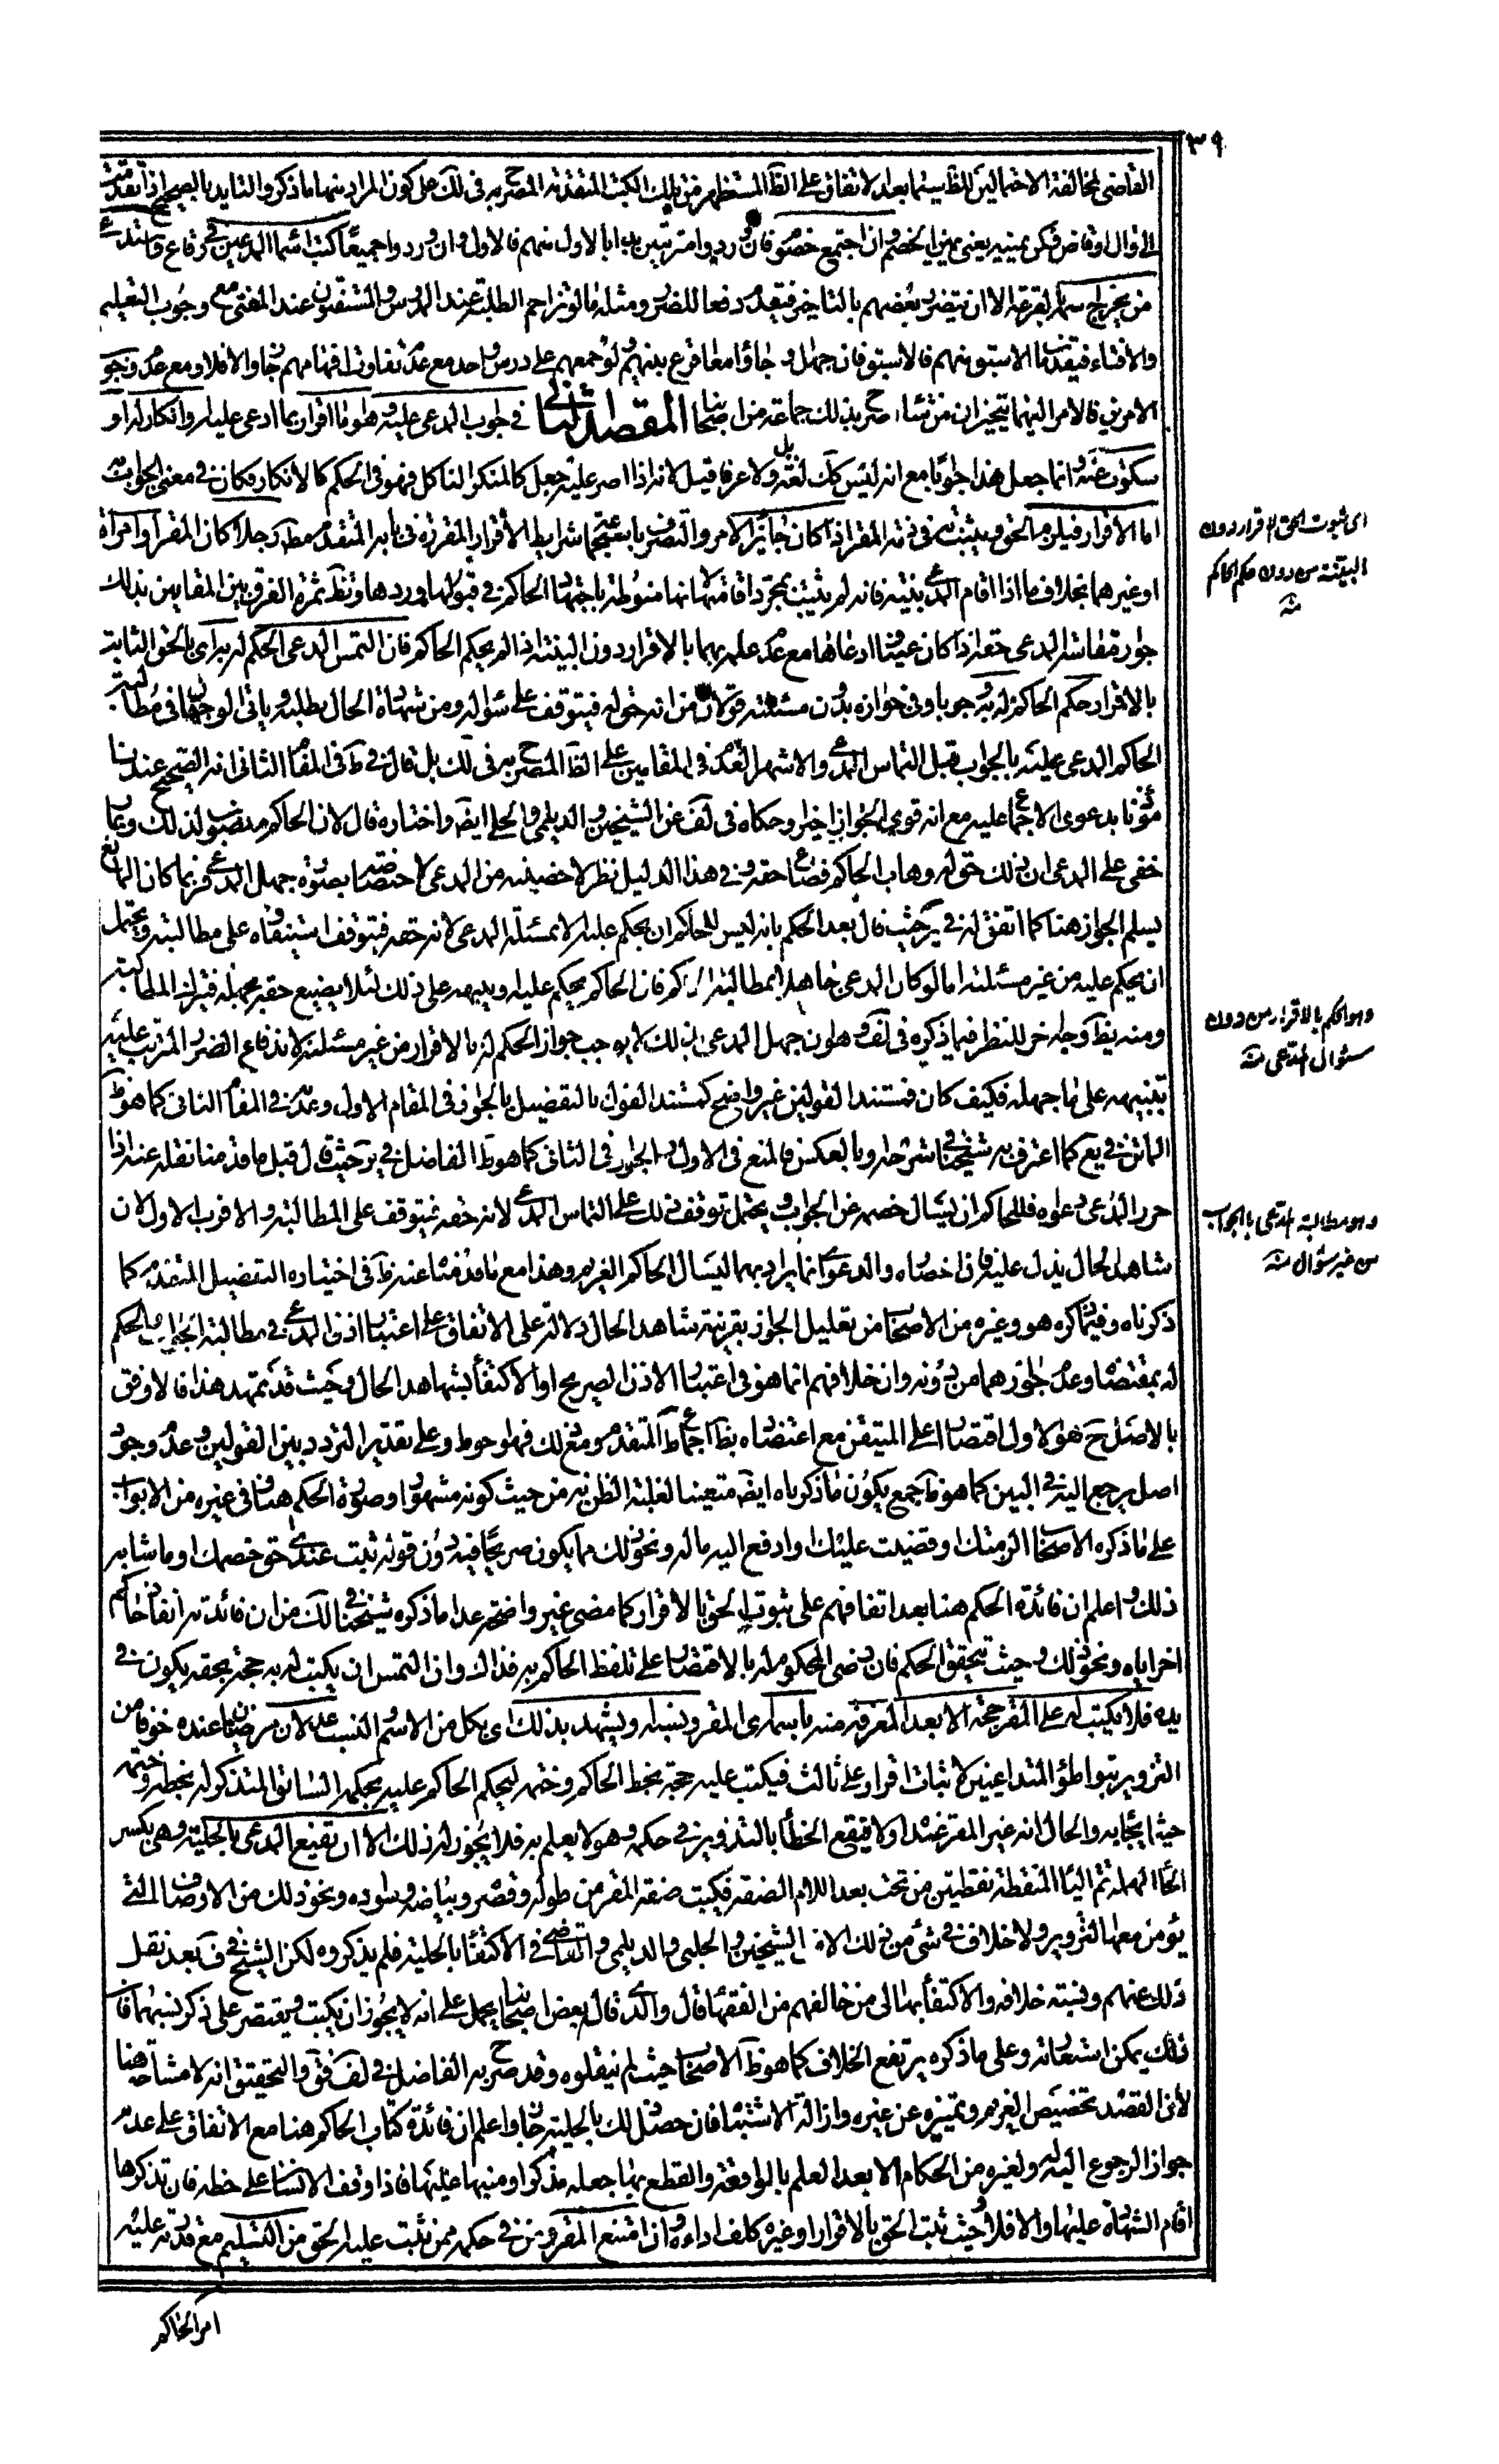 ٣٩
القاضي لمخالفة الاحتمالين للظ سيما بعد الاتفاق على الظ المستظهر من تلك الكتب المتقدمة المصرح به في ذلك على كون المراد منهما ما ذكر والتايد بالصحيح اذا تقدمت
الى وال او قاض فكن عن يمينه يعني عن يمين الخصم وان اجتمع خصوم فان وردوا مترتبين بدا بالاول منهم فالاول وان وردوا جميعا كتب اسماء المدعين في رقاع واستدعى
من يخرج سهمه بقرعة الا ان يتضرر بعضهم بالتاخير فيقدم دفعا للضرر ومثله ما لو تزاحم الطلبة عند المدرس والمستفتون عند المفتي مع وجوب التعليم
والافتاء فيقدم الاسبق منهم فالاسبق فان جهل او جاؤا معا اقرع بينهم ولو جمعهم على درس واحد مع عدم تفاوت افهامهم جاز والا فلا ومع عدم وجوب
الامرين فالامر اليهما يتخيران من شاءا صرح بذلك جماعة من اصحابنا المقصد الثاني في جواب المدعى عليه وهو اما اقرار بما ادعى عليه او انكار له او
سكوت عنه وانما جعل هذا جوابا مع انه ليس كك لغة بل ولا عرفا قيل لانه اذا اصر عليه جعل كالمنكر الناكل فهو في الحكم كالانكار فكان في معنى الجواب به
اما الاقرار فيلزم الحق ويثبت به في ذمة المقر اذا كان جايز الامر والتصرف باستجماعه شرايط الاقرار المقررة في بابه المتقدم مط رجلا كان المقر او امراة
او غيرهما بخلاف ما اذا اقام المدعي بينة فانه لم يثبت بمجرد اقامتها لانها منوطة باجتهاد الحاكم في قبولها وردها وتظ ثمرة الفرق بين المقامين بذلك
جواز مقاصة المدعي حقه اذا كان عينا ادعاها مع عدم علمه بهما بالاقرار دون البينة اذا لم يحكم الحاكم فان التمس المدعي الحكم له به اي بالحق الثابت
بالاقرار حكم الحاكم له به وجوبا وفي جوازه بدون مسئلته قولان من انه حق له فيتوقف على سؤاله ومن شهادة الحال بطلبه وياتي الوجهان في مطالبة
الحاكم المدعى عليه بالجواب قبل التماس المدعي والاشهر العدم في المقامين على الظ المصرح به في لك بل قال في ط في المقام الثاني انه الصحيح عندنا
مؤذنا بدعوى الاجماع عليه مع انه قوي الجواز اخيرا وحكاه في لف عن الشيخين والديلمي والحلي ايض واختاره قال لان الحاكم منصوب لذلك وربما
خفي على المدعي ان ذلك حق له وهاب الحاكم فضاع حقه وفي هذا الدليل نظر لاخصيته من المدعى لاختصاصه بصورة جهل المدعي فربما كان المانع
يسلم الجواز هنا كما اتفق له في ير حيث قال بعد الحكم بانه ليس للحاكم ان يحكم عليه الا بمسئلة المدعي لانه حقه فيتوقف استيفاه على مطالبته ويحتمل
ان يحكم عليه من غير مسئلته اما لو كان المدعي جاهلا بمطالبة الحاكم فان الحاكم يحكم عليه وينبهه على ذلك لئلا يضيع حقه بجهله فيترك المطالبة
ومنه يظ وجه اخر للنظر فيما ذكره في لف وهو ان جهل المدعي بذلك لا يوجب جواز الحكم له بالاقرار من غير مسئلته لاندفاع الضرر المترتب عليه
بتنبيهه على ما جهله فكيف كان فمستند القولين غير واضح كمستند القول بالتفصيل بالجواز في المقام الاول وعدمه في المقام الثاني كما هو ظ
الماتن في يع كما اعترف به شيخنا في شرحه وبالعكس فالمنع في الاول والجواز في الثاني كما هو ظ الفاضل في ير حيث قال قبل ما قدمنا نقله عنه اذا
حرر المدعي دعواه فللحاكم ان يسال خصمه عن الجواب ويحتمل توقف ذلك على التماس المدعي لانه حقه فيتوقف على المطالبة والاقرب الاول لان
شاهد الحال يدل عليه فان احضاره والدعوى انما يراد بهما ليسال الحاكم الغريم وهذا مع ما قدمنا عنه ظ في اختياره التفصيل المتقدم كما
ذكرناه وفيما ذكره هو وغيره من الاصحاب من تعليل الجواز بقرينة شاهد الحال دلالة على الاتفاق على اعتبار اذن المدعي في مطالبة الجواب والحكم
له بمقتضاه وعدم جوازهما من دونه وان خلافهم انما هو في اعتبار الاذن الصريح او الاكتفاء بشهادة الحال وحيث قد تمهد هذا فالاوفق
بالاصل ح هو الاول اقتصارا على المتيقن مع اعتضاده بظ اجماع ط المتقدم ومع ذلك فهو احوط وعلى تقدير التردد بين القولين وعدم وجود
اصل يرجع اليه في البين كما هو ظ جمع يكون ما ذكرناه ايض متعينا لغلبة الظن به من حيث كونه مشهورا وصورة الحكم هنا وفي غيره من الابواب
على ما ذكره الاصحاب الزمتك او قضيت عليك او ادفع اليه ماله ونحو ذلك مما يكون صريحا فيه دون قوله ثبت عندي حق خصمك او ما شابه
ذلك واعلم ان فائدة الحكم هنا بعد اتفاقهم على ثبوت الحق بالاقرار كما مضى غير واضحة عدا ما ذكره شيخنا في لك من ان فائدته انفاذ حاكم
اخر اياه ونحو ذلك وحيث يتحقق الحكم فان رضي المحكوم له بالاقتصار على تلفظ الحاكم به فذاك وان التمس ان يكتب له به حجة بحقه يكون في
يده فلا يكتب له على المقر حجة الا بعد المعرفة منه باسمه اي المقر ونسبه ويشهد بذلك اي بكل من الاسم والنسب عدلان مرضيان عنده خوفا من
التزوير بتواطؤ المتداعيين لاثبات اقرار على ثالث فيكتب عليه حجة بخط الحاكم وختمه ليحكم الحاكم عليه بحكمه السابق المتذكر له بخطه وختمه
حيث ايجابه والحال انه غير المقر عنده اولا فيقع الخطأ بالتزوير في حكمه وهو لا يعلم به فلا يجوز له ذلك الا ان تقنع المدعي بالحلية وهي بكسر
الحاء المهملة ثم الياء المنقطة نقطتين من تحت بعد اللام الصفة فيكتب صفة المقر من طوله وقصره وبياضه وسواده ونحو ذلك من الاوصاف التي
يؤمن معها التزوير ولا خلاف في شئ من ذلك الا من الشيخين والحلبي والديلمي والقاضي في الاكتفاء بالحلية فلم يذكروه لكن الشيخ في ف بعد نقل
ذلك عنهم ونسبته خلافه والاكتفاء بها الى من خالفهم من الفقهاء قال والذي قاله بعض اصحابنا يحمل على انه لا يجوز ان يكتب ويقتصر على ذكر نسبهما فان
ذلك يمكن استعارته وعلى ما ذكره يرتفع الخلاف كما هو ظ الاصحاب حيث لم ينقلوه وقد صرح به الفاضل في لف وفق والتحقيق انه لا مشاحة هنا
لان القصد تخصيص الغريم وتميزه عن غيره وازالة الاشتباه فان حصل ذلك بالحلية جاز واعلم ان فائدة كتاب الحاكم هنا مع الاتفاق على عدم
جواز الرجوع اليه له ولغيره من الحكام الا بعد العلم بالواقعة والقطع بها جعله مذكرا ومنبها عليها فاذا وقف الانسان على خطه فان تذكرها
اقام الشهادة عليها والا فلا وحيث ثبت الحق بالاقرار او غيره كلف اداءه وان امتنع المقر ومن في حكمه ممن ثبت عليه الحق من التسليم مع قدرته عليه
امر الحاكم
اى ثبوت الحق بالاقرار دون
البينة من دون حكم الحاكم
منه
وهو الحكم بالاقرار من دون
سئوال المدعى منه
وهو مطالبة المدعى بالجواب
من غير سئوال منه